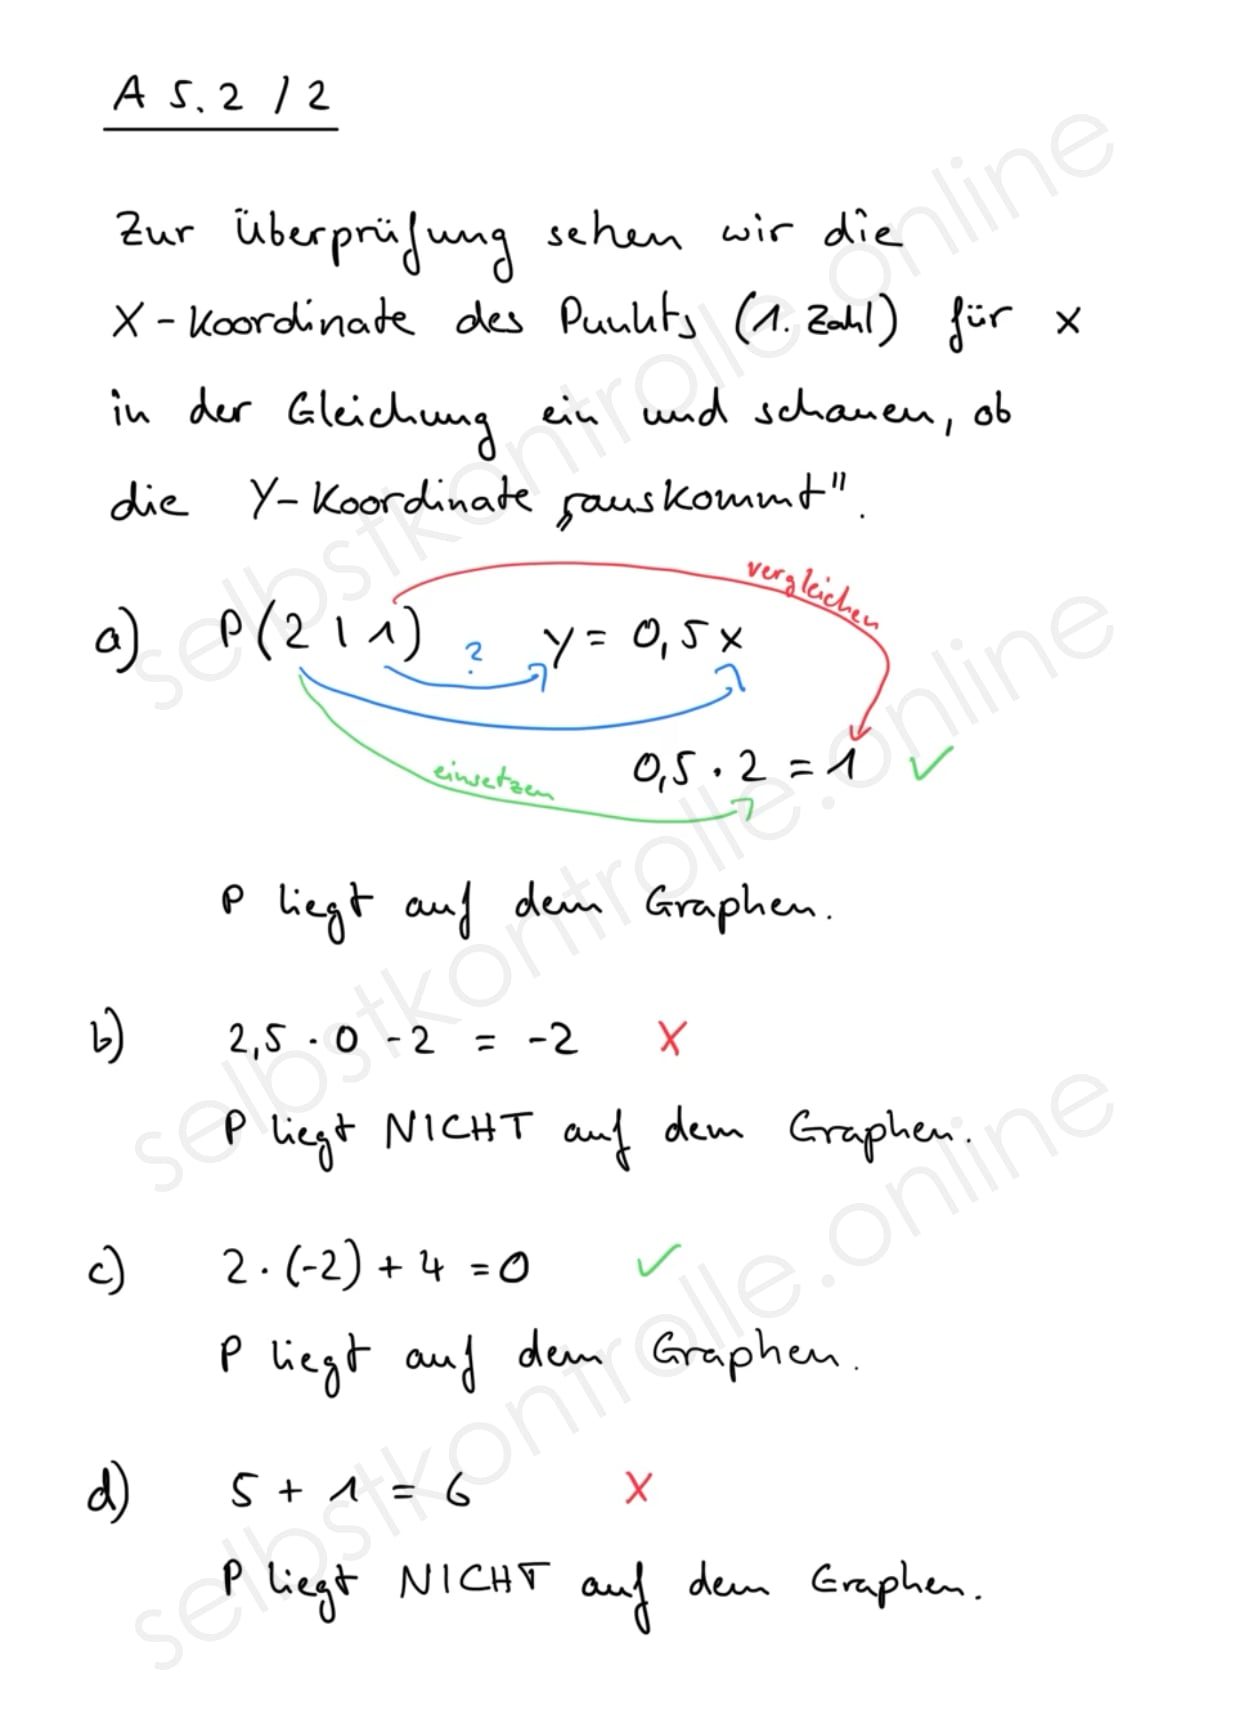 A 5.2 / 2
Zur Überprüfung sehen wir die
X-Koordinate des Punkts (1. Zahl) für x
in der Gleichung ein und schauen, ob
die Y-Koordinate „rauskommt".
vergleichen
a) P(2|1) ? y = 0,5x
einsetzen 0,5 · 2 = 1 ✓
P liegt auf dem Graphen.
b) 2,5 · 0 - 2 = -2 X
P liegt NICHT auf dem Graphen.
c) 2 · (-2) + 4 = 0 ✓
P liegt auf dem Graphen.
d) 5 + 1 = 6 X
P liegt NICHT auf dem Graphen.
selbstkontrolle.online
selbstkontrolle.online
selbstkontrolle.online